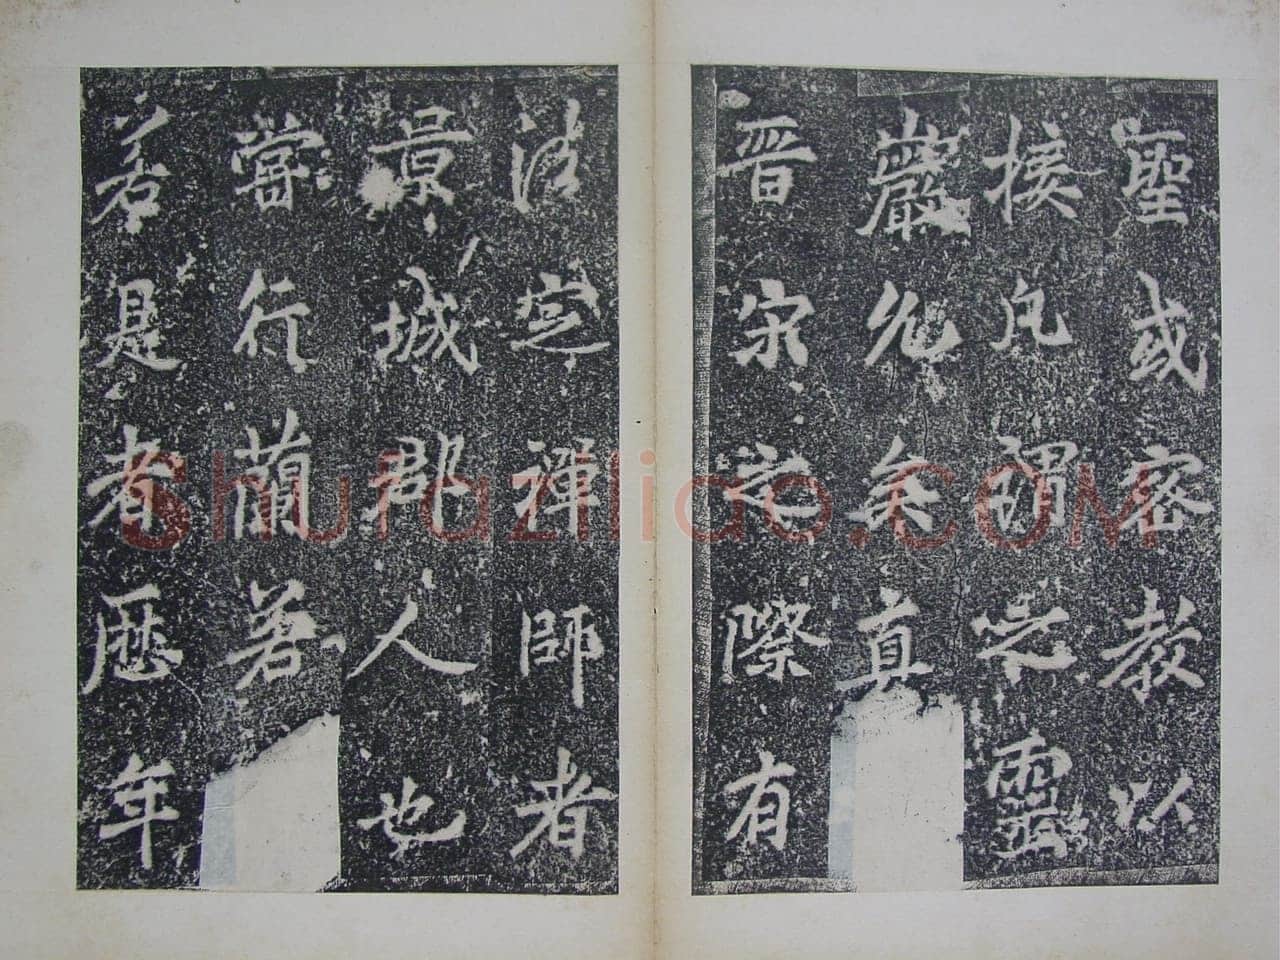 聖或密教以
接凡謂之靈
巖允矣真
晉宋之際有
法定禪師者
景城郡人也
嘗行蘭若
若是者歷年
Shufaziliao.COM